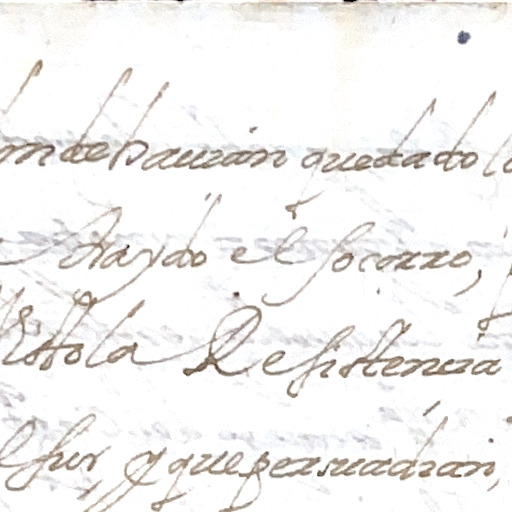 onde hauian quedado lo
traydo el socorro,
Visto la Resistencia
sur, y que persuadian,